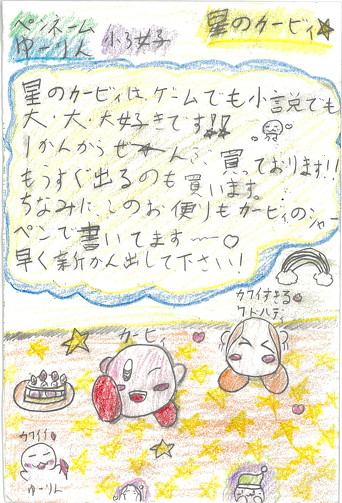 ペンネーム
ゆーりん
小5女子
星のカービィ
星のカービィは、ゲームでも小説でも
大・大・大好きです!!
1かんからぜーんぶ、買っております!!
もうすぐ出るのも買います。
ちなみにこのお便りもカービィのシャー
ペンで書いてます〜♡
早く新かん出して下さい!
カワイすぎる
ワドルディ
カービィ
カワイイ
ゆーりん